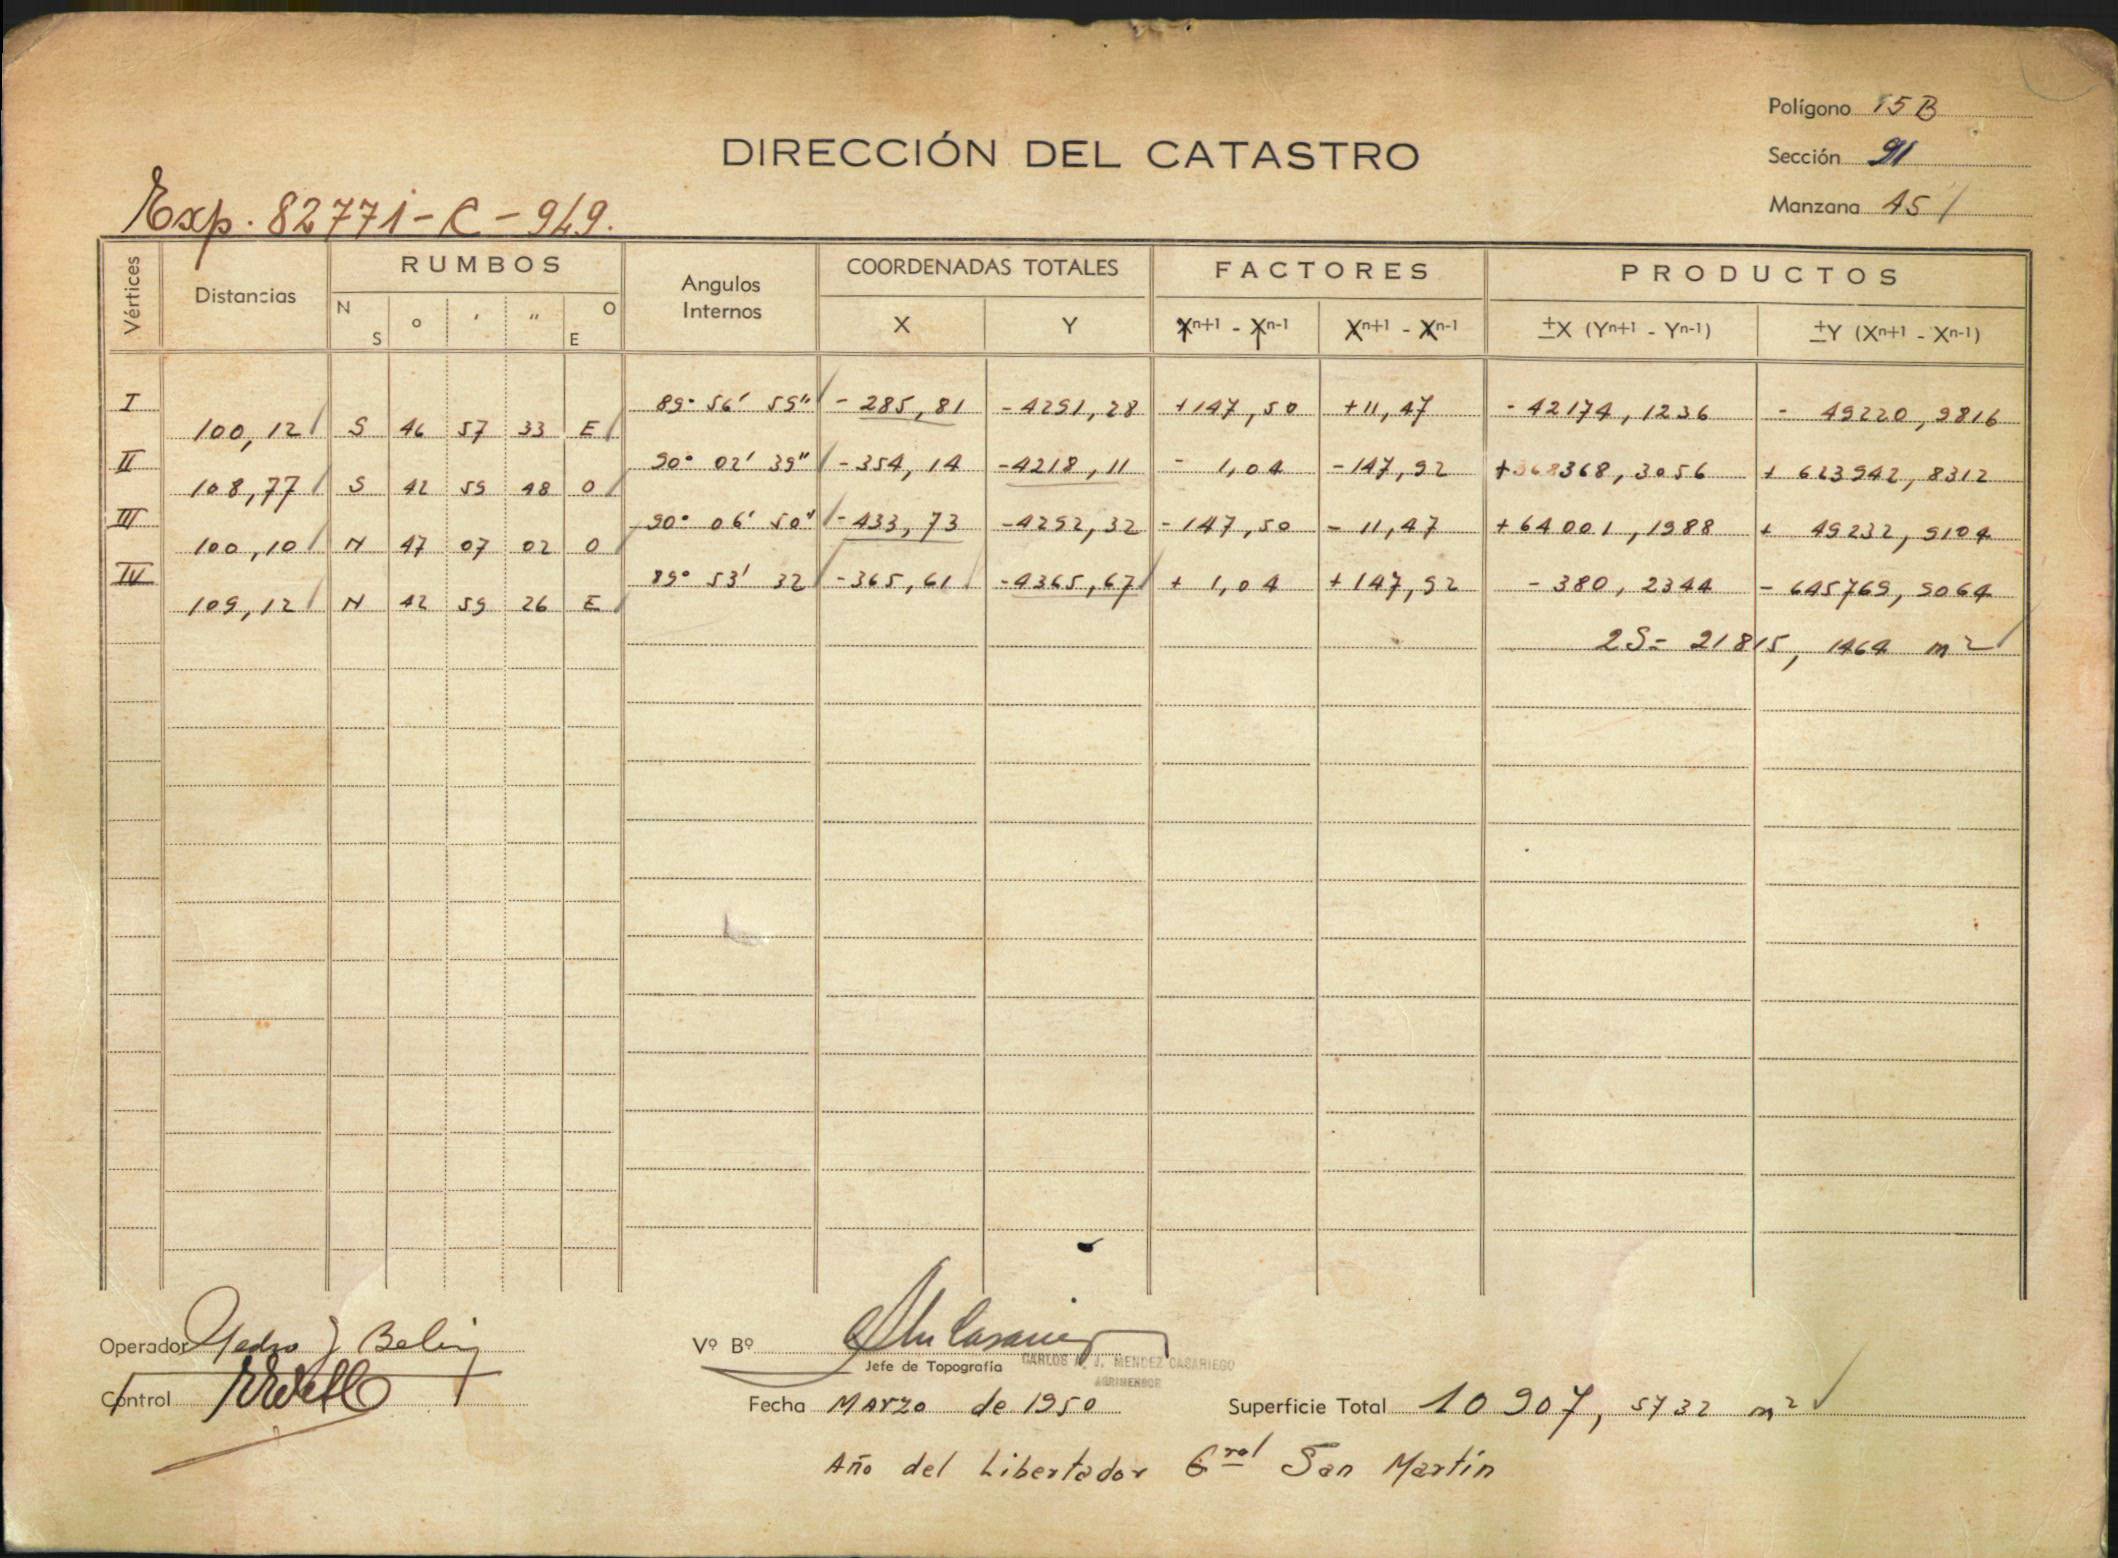 Polígono 15 B
DIRECCIÓN DEL CATASTRO
Sección 91
Exp. 82771-C-949.
Manzana 45
Vértices Distancias RUMBOS Angulos Internos COORDENADAS TOTALES FACTORES PRODUCTOS
N S ° ' " O E X Y Yⁿ⁺¹ - Yⁿ⁻¹ Xⁿ⁺¹ - Xⁿ⁻¹ ±X (Yⁿ⁺¹ - Yⁿ⁻¹) ±Y (Xⁿ⁺¹ - Xⁿ⁻¹)
I 89° 56' 59" -285,81 -4291,28 +147,56 +11,47 -42174,1236 - 49220,9816
100,12 S 46 57 33 E
II 90° 02' 39" -354,14 -4218,11 - 1,04 -147,92 +368,3056 + 623942,8312
108,77 S 42 59 48 O
III 90° 06' 50" -433,73 -4292,32 -147,56 - 11,47 +64001,1988 + 49232,9104
100,10 N 47 07 02 O
IV 89° 53' 32 -365,61 -4365,67 + 1,04 +147,92 - 380,2344 - 645769,9064
109,12 N 42 59 26 E
2S= 21815,1464 m²
Operador Pedro J Belin
Vº Bº
Jefe de Topografía
CARLOS A. J. MENDEZ CASARIEGO
AGRIMENSOR
Control
Fecha Marzo de 1950
Superficie Total 10907,5732 m²
Año del Libertador Gral San Martín